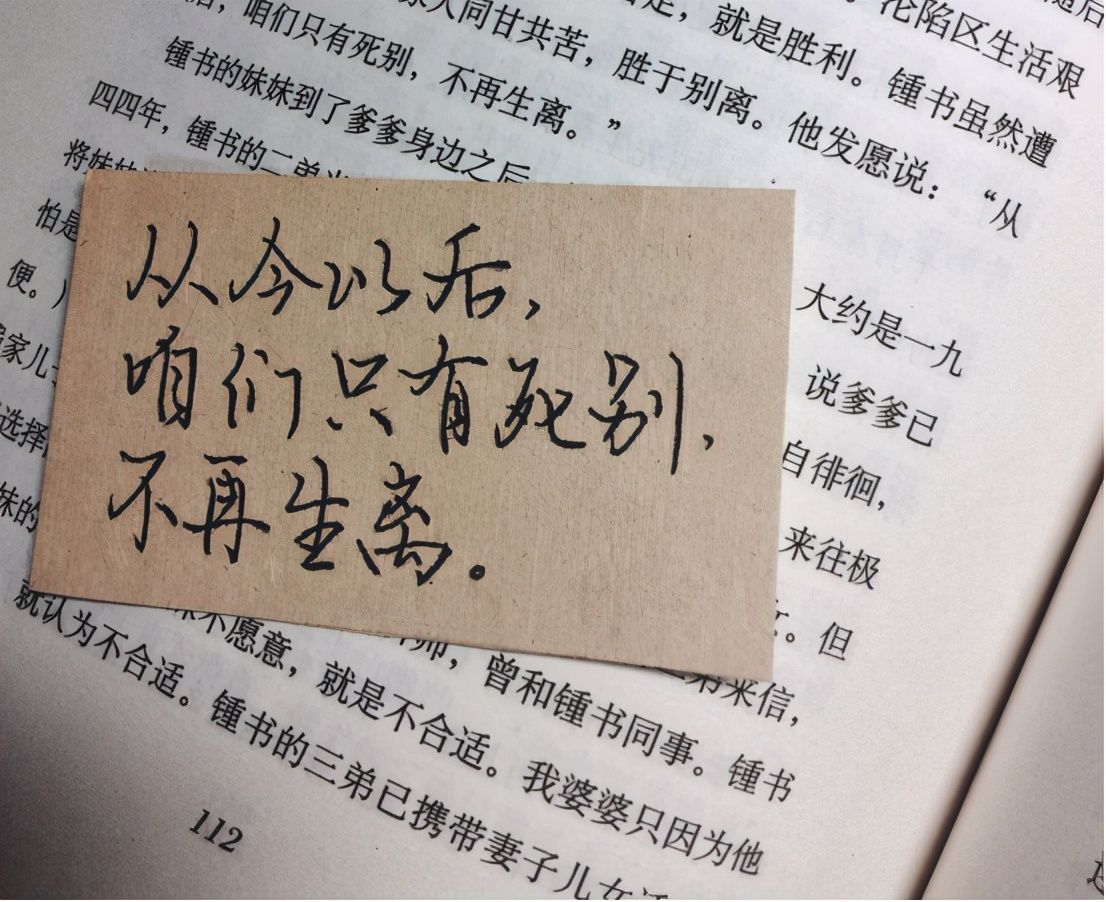 随后
沦陷区生活艰
足，就是胜利。锺书虽然遭
家人同甘共苦，胜于别离。他发愿说：“从
咱们只有死别，不再生离。”
锺书的妹妹到了爹爹身边之后
大约是一九
四四年，锺书的二弟
说爹爹已
将妹妹
自徘徊，
怕是
来往极
便。
。但
家儿
来信，
选择
师，曾和锺书同事。锺书
妹的
不愿意，就是不合适。我婆婆只因为他
就认为不合适。锺书的三弟已携带妻子儿女
112
从今以后，
咱们只有死别，
不再生离。